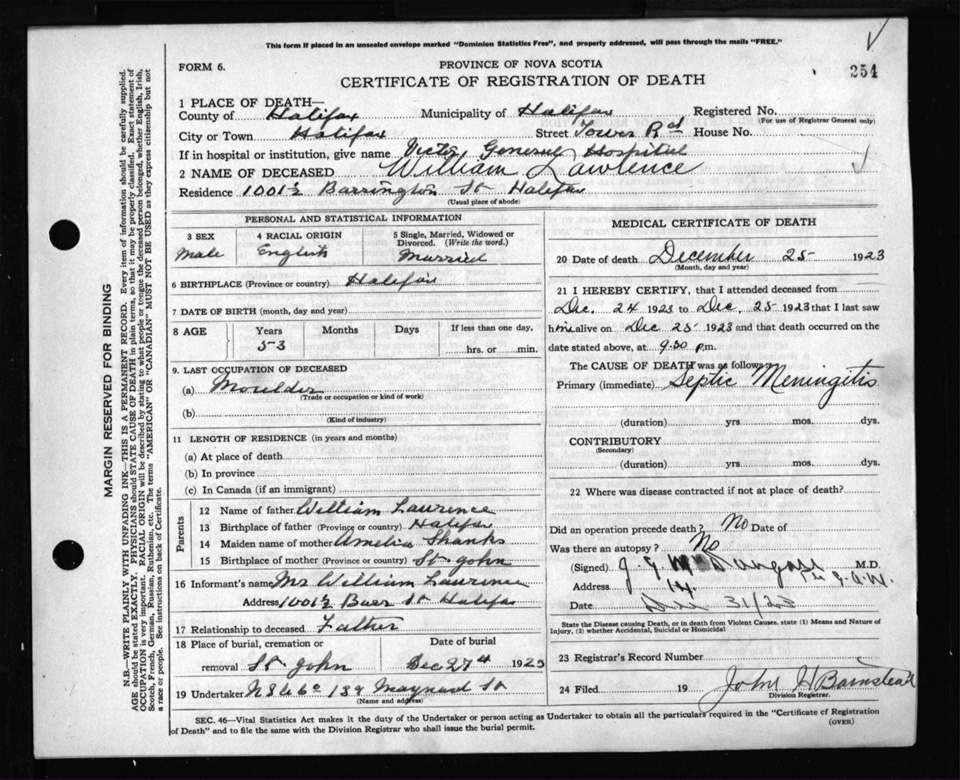 This form if placed in an unsealed envelope marked "Dominion Statistics Free", and property addressed, will pass through the mails "FREE."
FORM 6.
PROVINCE OF NOVA SCOTIA
254
CERTIFICATE OF REGISTRATION OF DEATH
1 PLACE OF DEATH—
County of Halifax Municipality of Halifax Registered No.
(For use of Registrar General only)
City or Town Halifax Street Tower Rd House No.
If in hospital or institution, give name Victo General Hospital
2 NAME OF DECEASED William Lawrence
Residence 1001½ Barrington St Halifax
(Usual place of abode)
PERSONAL AND STATISTICAL INFORMATION
3 SEX
Male
4 RACIAL ORIGIN
English
5 Single, Married, Widowed or Divorced. (Write the word.)
Married
6 BIRTHPLACE (Province or country) Halifax
7 DATE OF BIRTH (month, day and year)
8 AGE Years Months Days If less than one day.
53 hrs. or min.
9. LAST OCCUPATION OF DECEASED
(a) Moulder
(Trade or occupation or kind of work)
(b)
(Kind of industry)
11 LENGTH OF RESIDENCE (in years and months)
(a) At place of death
(b) In province
(c) In Canada (if an immigrant)
Parents
12 Name of father William Laurence
13 Birthplace of father (Province or country) Halifax
14 Maiden name of mother Amelia Shanks
15 Birthplace of mother (Province or country) St. John
16 Informant's name Mr William Laurence
Address 1001½ Barr St Halifax
17 Relationship to deceased Father
18 Place of burial, cremation or removal St John
Date of burial Dec 27th 1923
19 Undertaker 139 Maynard St
(Name and address)
MEDICAL CERTIFICATE OF DEATH
20 Date of death December 25 1923
(Month, day and year)
21 I HEREBY CERTIFY, that I attended deceased from
Dec. 24 1923 to Dec. 25 1923 that I last saw
him alive on Dec 25 1923 and that death occurred on the
date stated above, at 9.30 p.m.
The CAUSE OF DEATH was as follows:
Primary (immediate) Septic Meningitis
(duration) yrs mos. dys.
CONTRIBUTORY
(Secondary)
(duration) yrs. mos. dys.
22 Where was disease contracted if not at place of death?
Did an operation precede death? No Date of
Was there an autopsy? No
(Signed) M.D.
Address
Date Dec 31/23
State the Disease causing Death, or in death from Violent Causes, state (1) Means and Nature of Injury, (2) whether Accidental, Suicidal or Homicidal
23 Registrar's Record Number
24 Filed 19 John H Barnstead
Division Registrar.
SEC. 46—Vital Statistics Act makes it the duty of the Undertaker or person acting as Undertaker to obtain all the particulars required in the "Certificate of Registration of Death" and to file the same with the Division Registrar who shall issue the burial permit.
(OVER)
MARGIN RESERVED FOR BINDING
N.B.—WRITE PLAINLY WITH UNFADING INK—THIS IS A PERMANENT RECORD. Every item of information should be carefully supplied.
AGE should be stated EXACTLY. PHYSICIANS should STATE CAUSE OF DEATH in plain terms, so that it may be properly classified. Exact statement of
OCCUPATION is very important. RACIAL ORIGIN will be described by stating to what people or tongue the deceased person belonged, whether English, Irish,
Scotch, French, German, Russian, Ruthenian, etc. The terms "AMERICAN" OR "CANADIAN" MUST NOT BE USED as they express citizenship but not
a race or people. See instructions on back of Certificate.